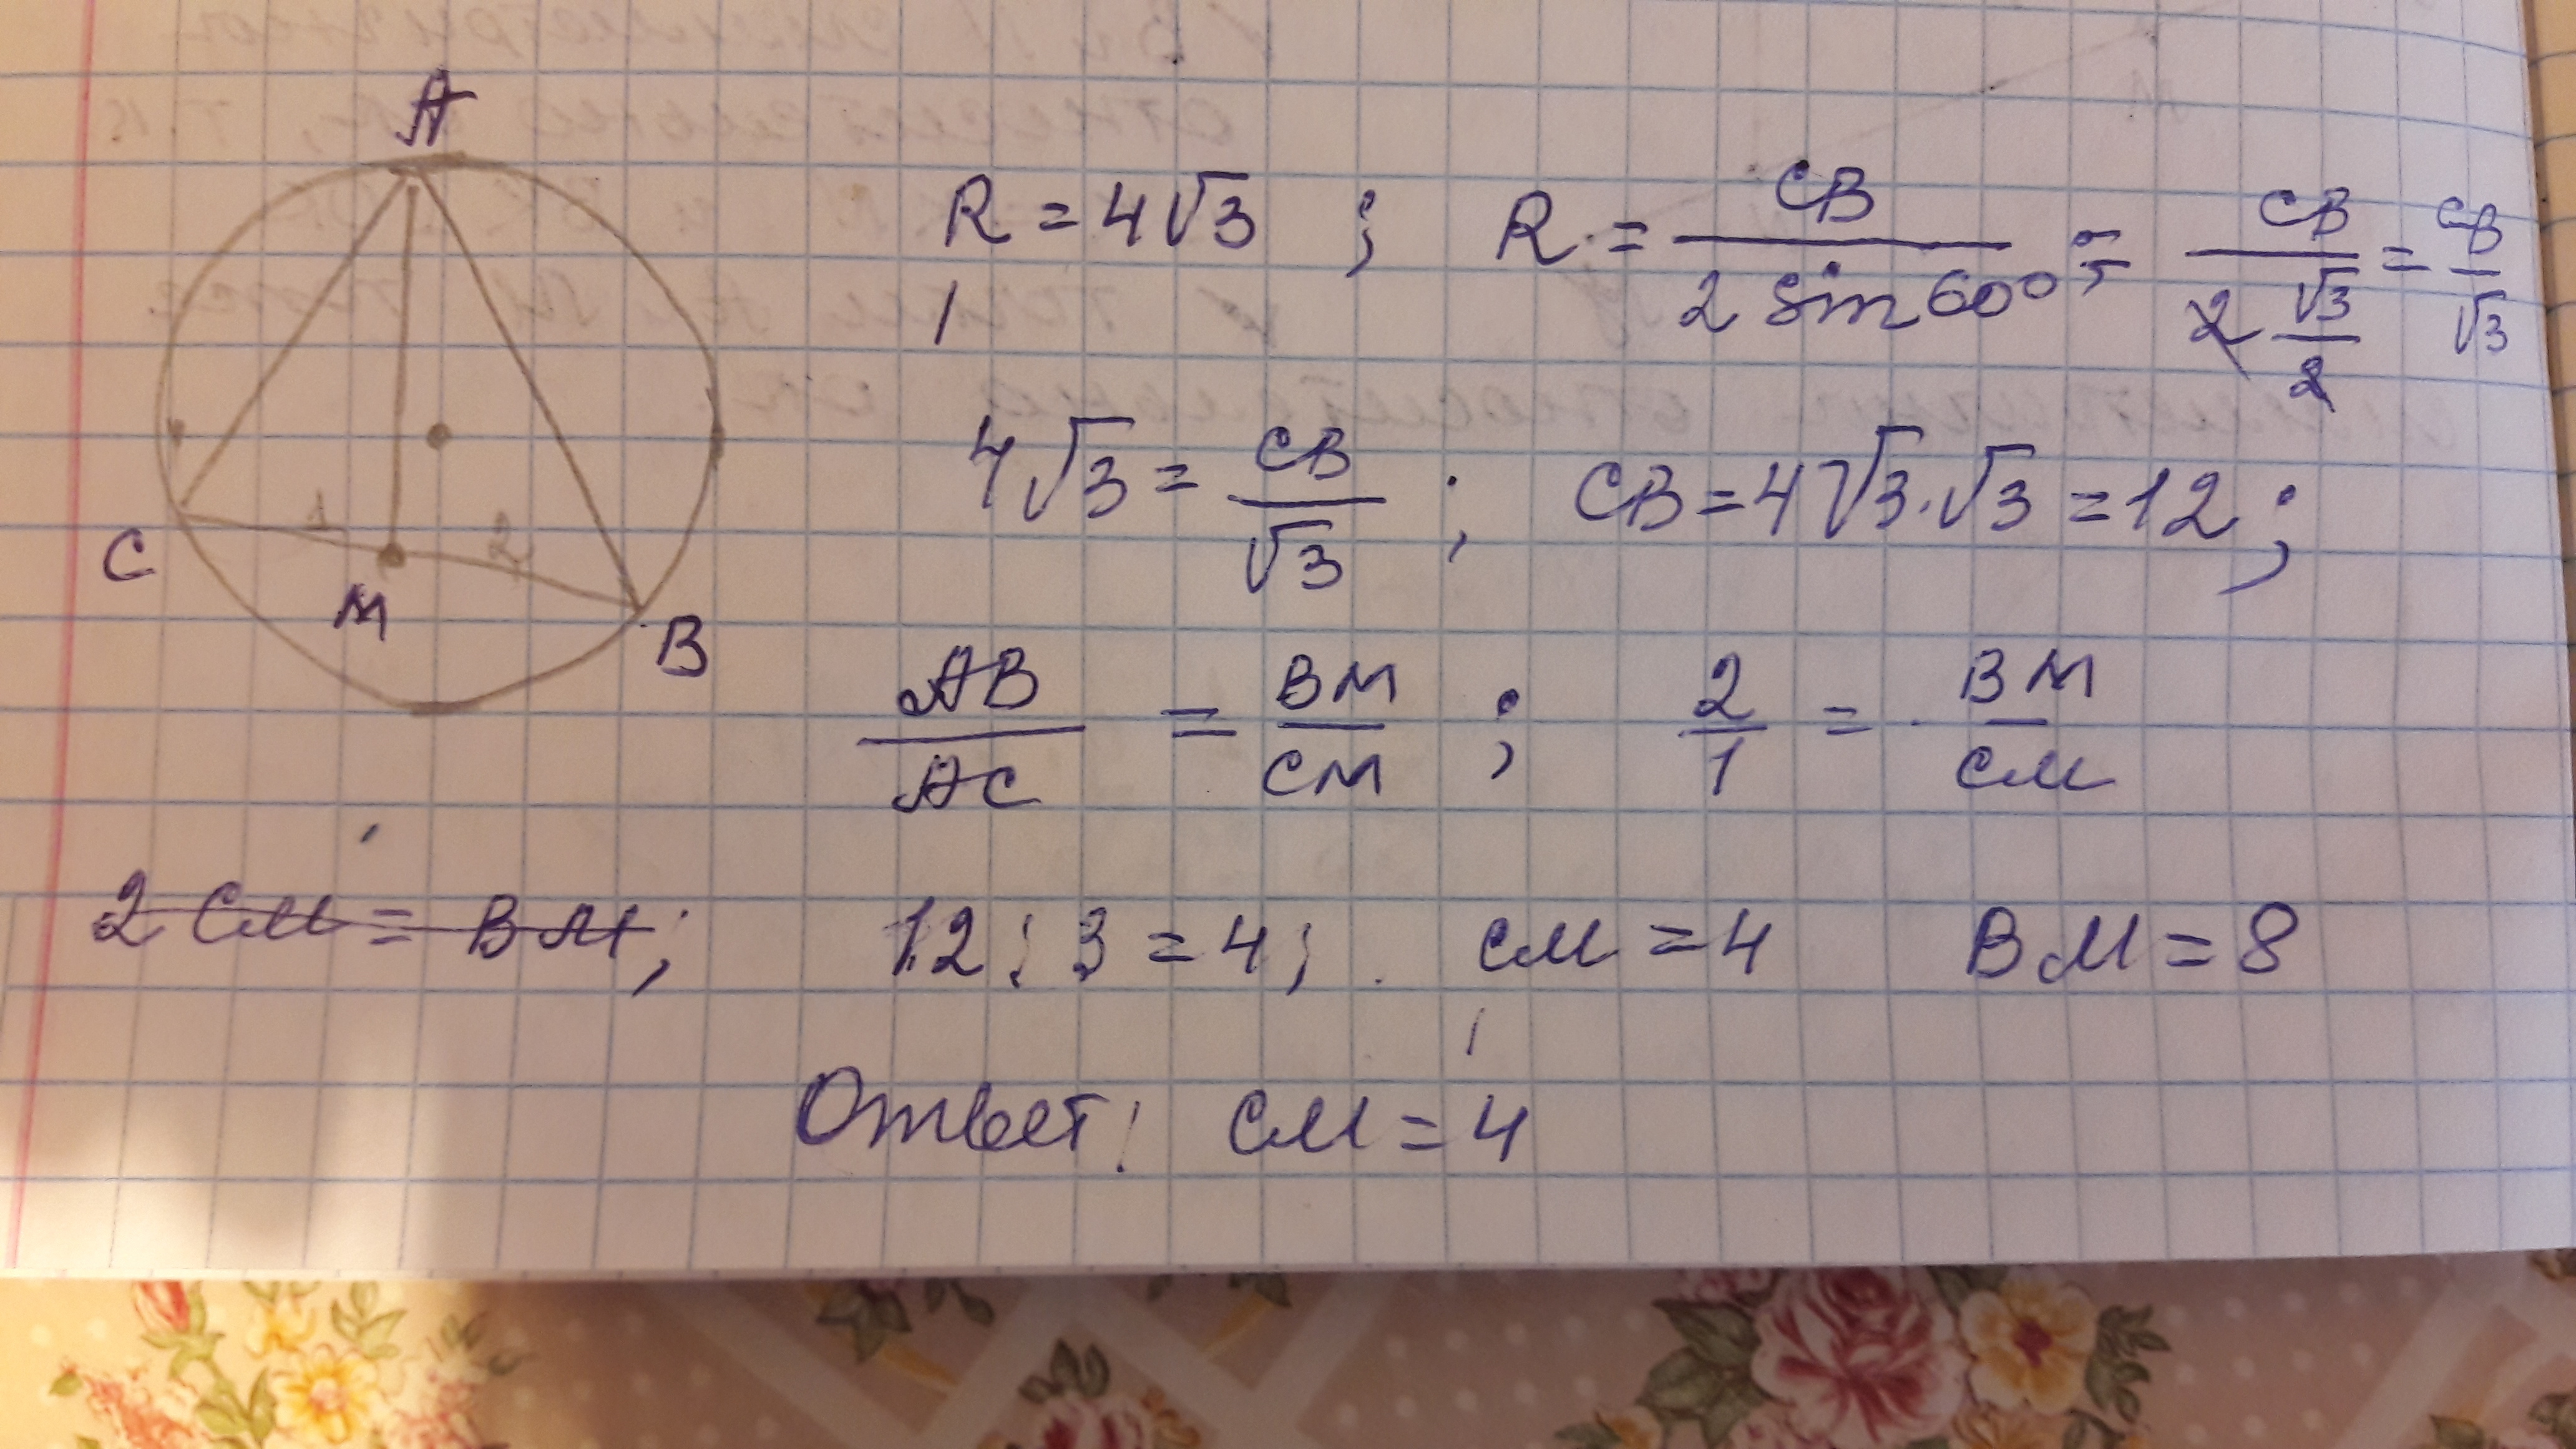 A
C
1
2
M
B
R = 4√3 ; R = CB / (2 sin 60°) = CB / (2 √3/2) = CB/√3
4√3 = CB/√3 ; CB = 4√3 · √3 = 12 ;
AB/AC = BM/CM ; 2/1 = BM/CM
2 CM = BM ; 12 : 3 = 4 ; CM = 4 BM = 8
Ответ: CM = 4